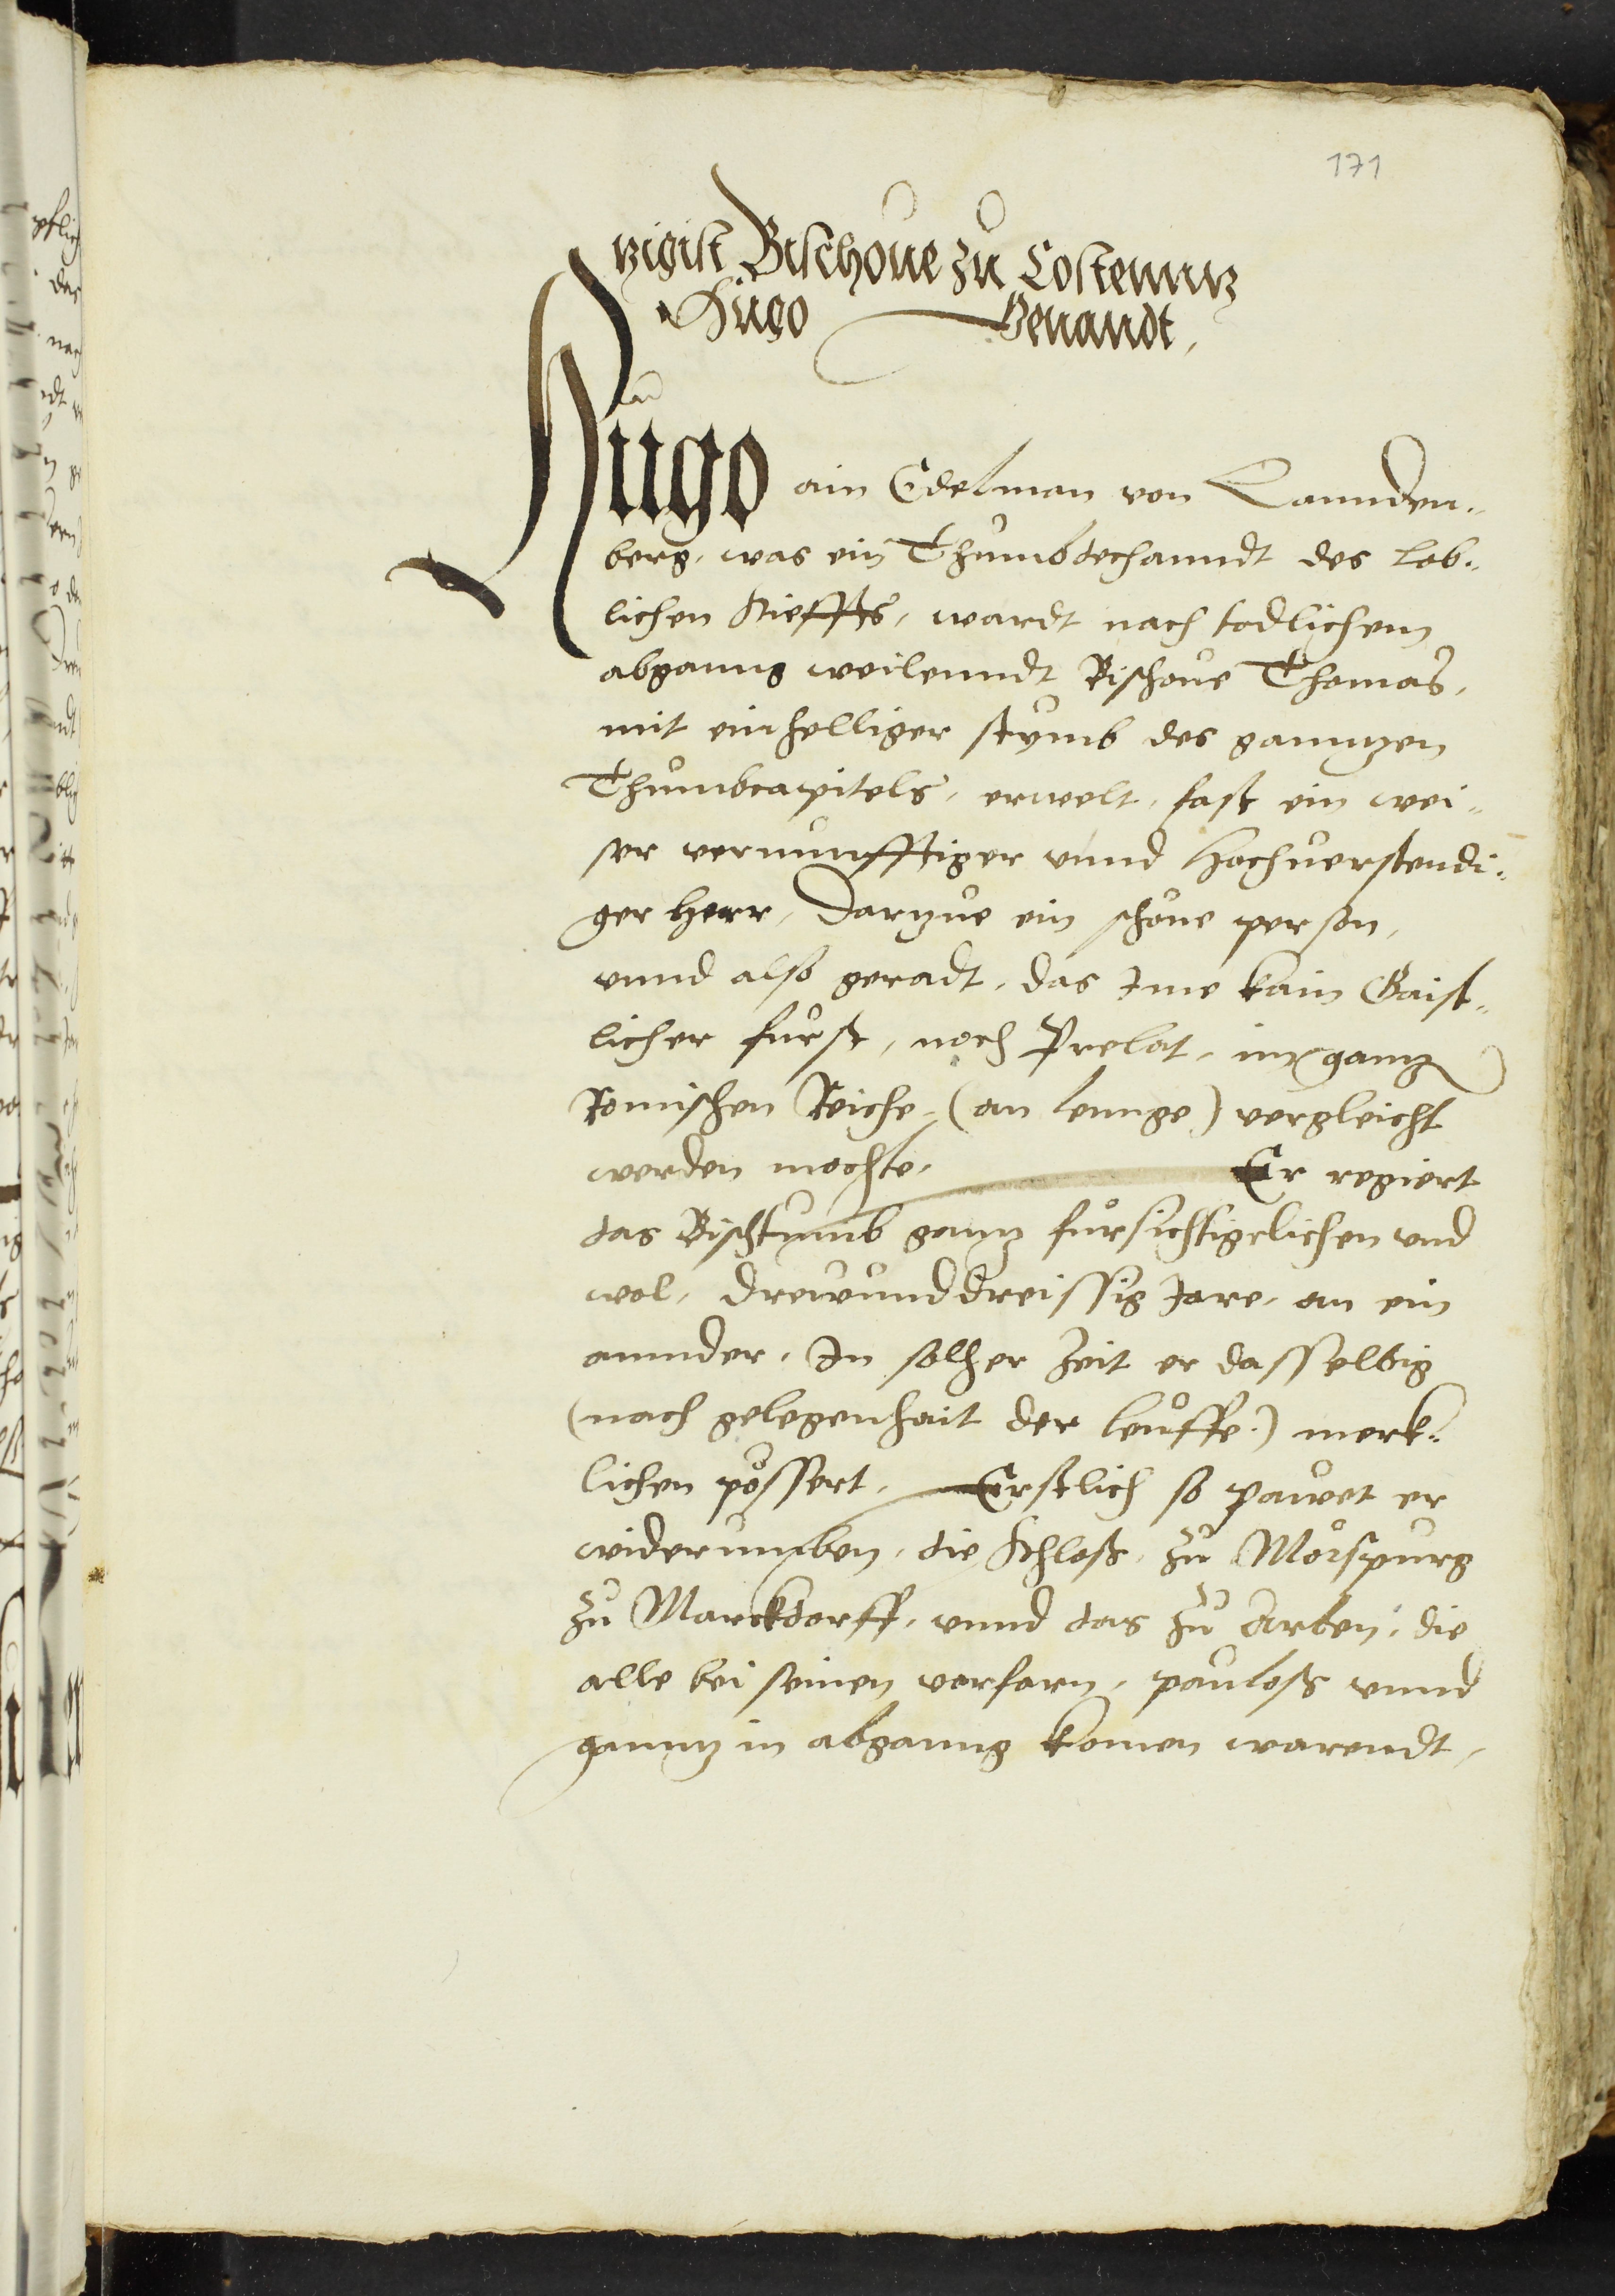 171
tzigist Bischoue zů Costenntz
Hůgo Genandt,
Hůgo ain Edelman von Lannden„
berg, was ein Thumbdechanndt des lob„
lichen Stieffts, wardt nach todlichem
abganng weilenndt Bischoue Thomas,
mit einhelliger stymb des ganntzen
Thumbcapitels, erwelt, fast ein wei„
ser vernunfftiger vnnd hochuerstendi„
ger herr, Dartzue ein schöne person,
vnnd also geradt, das Ime kain Gaist„
licher fürst, noch Prelat, im gantz
Romischen Reiche, (an lennge) vergleicht
werden mochte, Er regiert
das Bischtumb gantz fürsichtigclichen vnd
wol, drewunddreissig Jare, an ein
annder, In solher Zeit er dasselbig
(nach gelegenhait der leuffe) merk„
lichen pössert, Erstlich so pawet er
widerumben, die Schloß, zů Mörspurg
zů Marckdorff, vnnd das zů Arben, die
alle bei seinen vorfarn, pauloß vnnd
ganntz in abganng komen warendt,